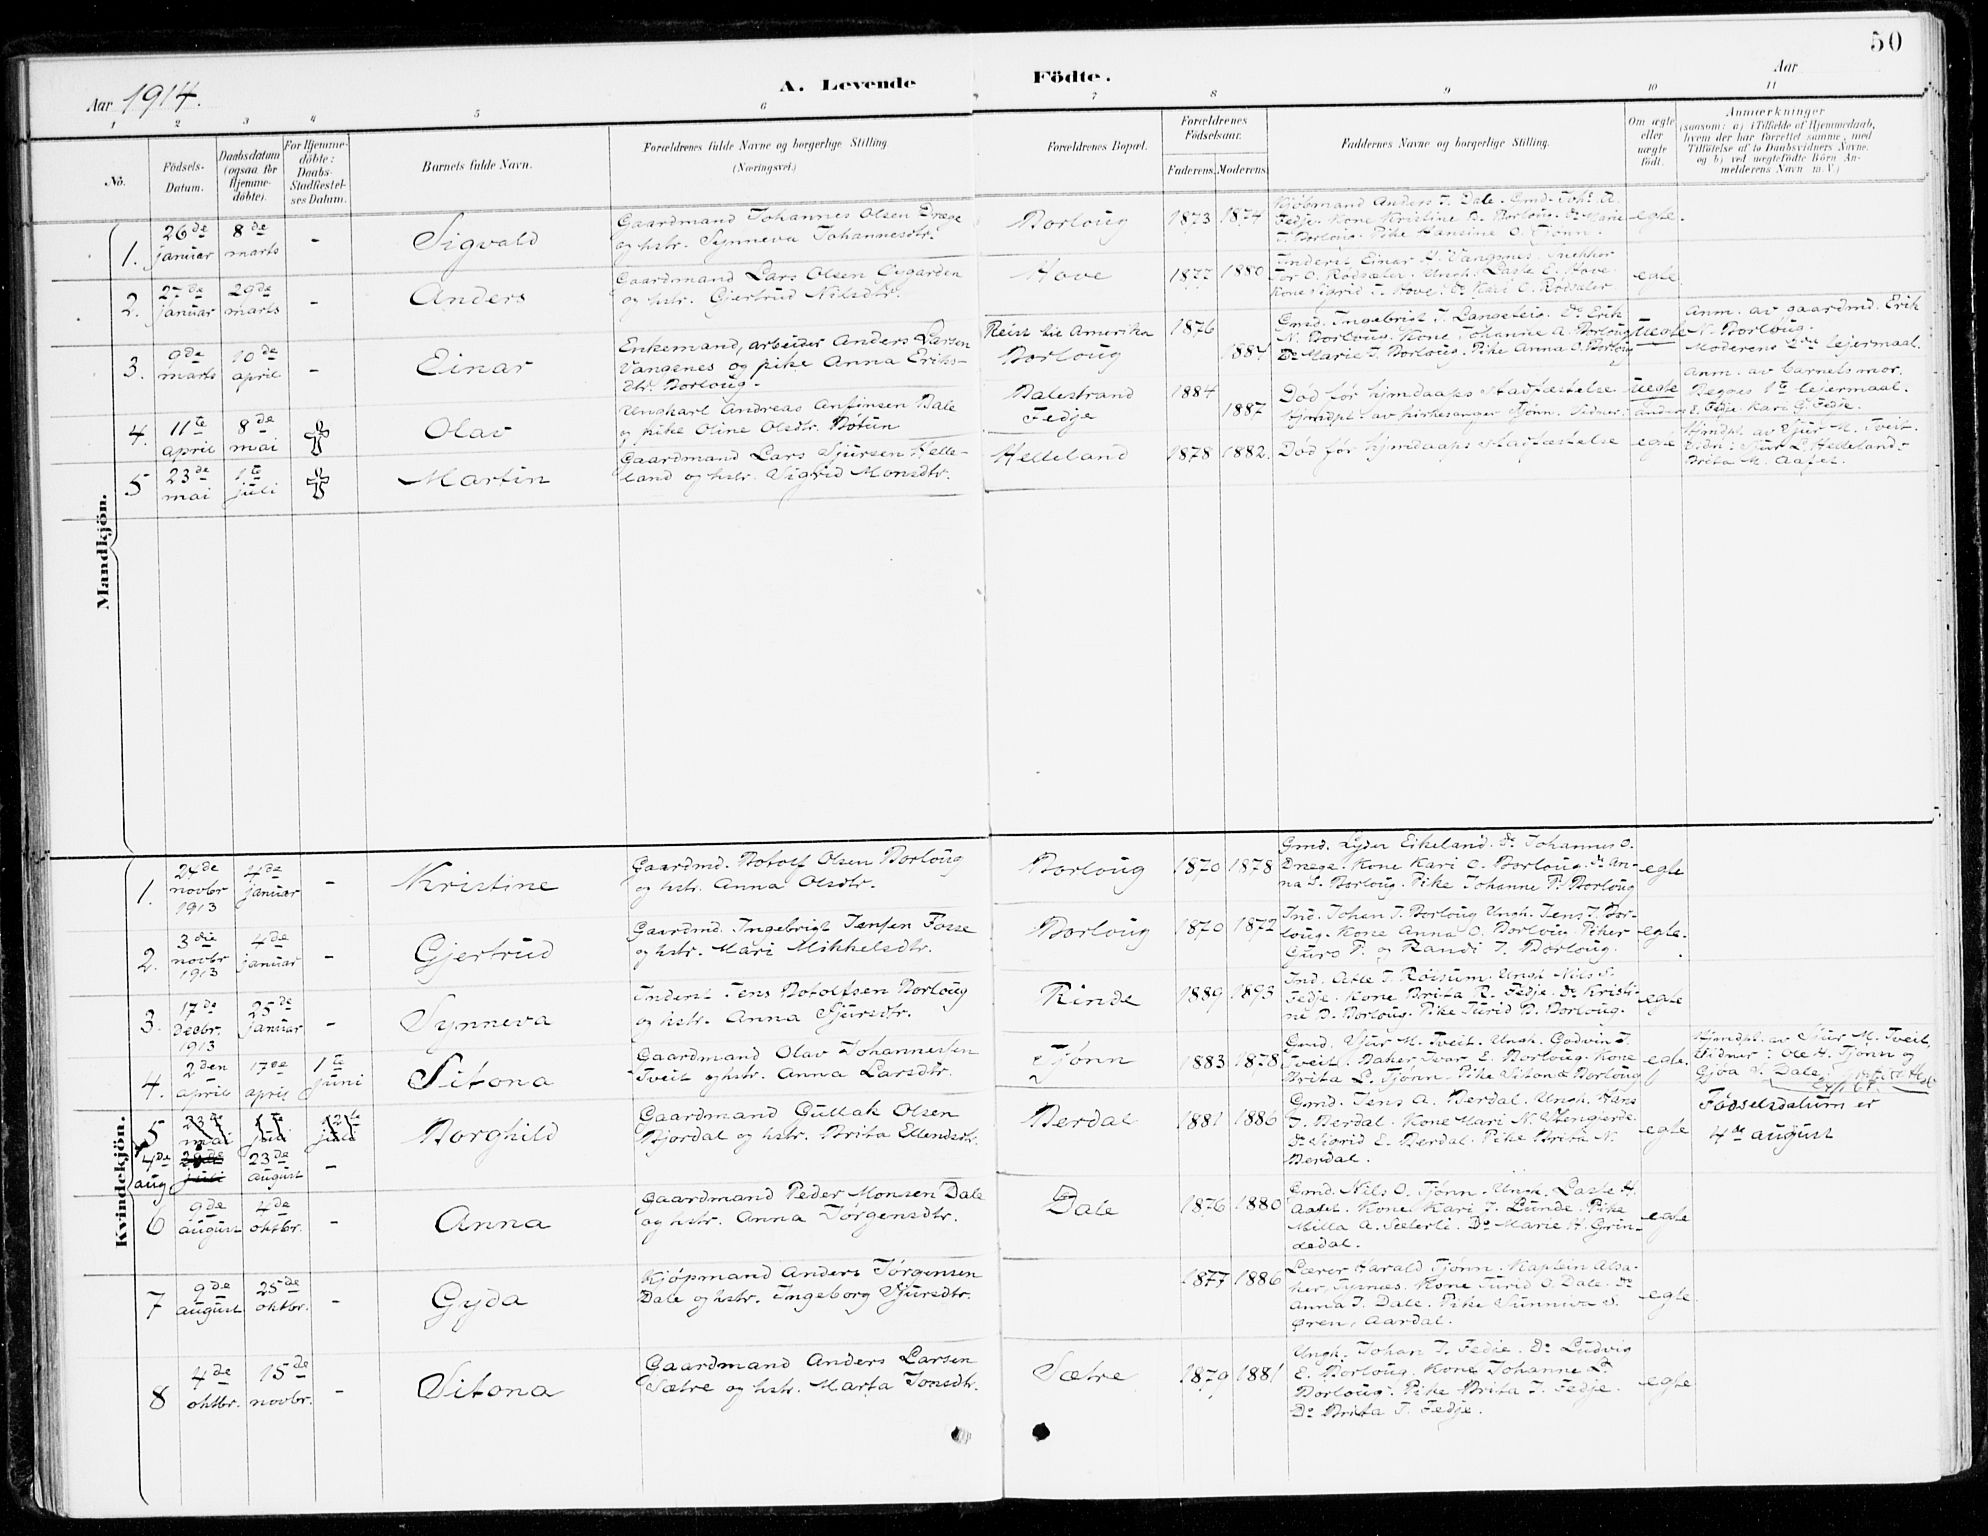 50
Aar 1914.
A. Levende Födte.
Aar
1 2 3 4 5 6 7 8 9 10 11
No.
Födsels-
Datum.
Daabsdatum
(ogsaa for
Hjemme-
döbte).
For Hjemme-
döbte:
Daabs-
Stadfæstel-
ses Datum.
Barnets fulde Navn.
Forældrenes fulde Navne og borgerlige Stilling
(Næringsvei.)
Forældrenes Bopæl.
Forældrenes
Födselsaar.
Faderens. Moderens.
Faddernes Navne og borgerlige Stilling.
Om ægte
eller
uægte
födt.
Anmærkninger
(saasom: a) i Tilfælde af Hjemmedaab,
hvem der har forrettet samme, med
Tilföielse af to Daabsvidners Navne.
og b) ved uægtefödte Börn An-
melderens Navn m. V.)
Mandkjön.
1.
26de
januar
8de
marts
-
Sigvald
Gaardmand Johannes Olsen Dræge
og hstr. Synneva Johannesdtr.
Borloug
1873 1874
Kjöbmand Anders J. Dale. Gmd. Johs A.
Fedje. Kone Kristine O. Borloug. Do Marie
J. Borloug. Pike Hansine O. Tjønn.
egte.
2.
27de
januar
29de
marts
-
Anders
Gaardmand Lars Olsen Nygarden
og hstr. Gjertrud Nilsdtr.
Hove
1877 1880
Inderst Einar H. Vangsnes. Snekker
Tor O. Rødsæter. Ungk. Lasse E. Hove.
Kone Sigrid J. Hove. Do Kari O. Rødsæter
egte
3.
9de
marts
10de
april
-
Einar
Enkemand, arbeider Anders Larsen
Vangsnes og pike Anna Eriks-
dtr. Borloug.
Reist til Amerika
Borloug
1876
1884
Gmd. Ingebrigt J. Langeteig. Do Erik
N. Borloug. Kone Johanne A. Borloug
Do Marie J. Borloug. Pike Anna O. Borloug
uegte
Anm. av gaardmd. Erik
N. Borloug.
Moderens lejermaal.
4.
11te
april
8de
mai
Olav
Ungkarl Andreas Anfinsen Bale
og pike Oline Olsdtr. Bøtun
Balestrand
Fedje
1884
1887
Død før hjmdaaps stadfestelse
hjmdpt. av kirkesanger Tjønn. Vidner:
uegte
Anders
Anm. av barnets mor.
Begges 1te lejermaal.
E. Fedje. Kari G. Fedje.
5
23de
mai
1te
juli
Martin
Gaardmand Lars Sjursen Helle-
land og hstr. Sigrid Monsdtr.
Helleland
1878 1882.
Død før hjmdaaps stadfestelse
egte
Hjmdpt. av Sjur M. Tveit.
Vidn: Sjur L. Helleland.
Brita M. Aafet.
Kvindekjön.
1.
24de
novbr
1913
4de
januar
-
Kristine
Gaardmd. Botolf Olsen Borloug
og hstr. Anna Olsdtr.
Borloug
1870 1878
Gmd. Lyder Eikeland. Do Johannes O.
Dræge. Kone Kari O. Borloug. Do An-
na S. Borloug. Pike Johanne P. Borloug
egte
2.
3die
novbr
1913
4de
januar
-
Gjertrud
Gaardmd. Ingebrigt Jensen Fosse
og hstr. Mari Mikkelsdtr.
Borloug
1870 1872
Ind. Johan J. Borloug Ungk. Jens J. Bor-
loug. Kone Anna O. Borloug. Piker
Guro P. og Randi J. Borloug.
egte.
3.
17de
decbr.
1913
25de
januar
-
Synneva
Inderst Jens Botolfsen Borloug
og hstr. Anna Sjursdtr.
Rinde
1889 1893
Ind. Atle J. Røisum. Ungk. Nils S.
Fedje. Kone Brita R. Fedje. Do Kristi-
ne D. Borloug. Pike Turid B. Borloug.
egte
4.
2den
april
17de
april
1te
juni
Sitona
Gaardmand Olav Johannessen
Tveit og hstr. Anna Larsdtr.
Tjønn
1883 1878
Gmd. Sjur M. Tveit. Ungk. Godvin J.
Tveit. Baker Ivar L. Borloug. Kone
Brita L. Tjønn. Pike Sitona Borloug
egte.
Hjmdpt. av Sjur M. Tveit,
Vidner: Ole H. Tjønn og
Gjøa S. Dale.
5
23de
mai
1te
juli
12te
juli
4de
aug
juli
23de
august
-
Borghild
Gaardmand Gullak Olsen
Bjordal og hstr. Brita Ellendsdtr.
Berdal
1881 1886
Gmd. Jens A. Berdal. Ungk. Hans
J. Berdal. Kone Mari N. Stengjerde.
Do Sigrid E. Berdal. Pike Brita N.
Berdal.
egte
Fødselsdatum er
4de august
6
9de
august
4de
oktbr.
-
Anna
Gaardmand Peder Monsen Dale
og hstr. Anna Jørgensdtr.
Dale
1876 1880
Gmd. Nils O. Tjønn. Ungk. Lasse H.
Aafet. Kone Kari J. Lunde. Pike
Milla A. Sæterli. Do Marie H. Grin-
dedal.
egte
7
9de
august
25de
oktbr.
-
Gyda
Kjøpmand Anders Jørgensen
Dale og hstr. Ingeborg Sjursdtr.
1877 1886
Lærer Harald Tjønn. Kaptein Alsa-
ker, Tysnes. Kone Turid O. Dale. Do
Anna J. Dale. Pike Sunniva S.
Øren, Aardal.
egte.
8
4de
oktbr.
15de
novbr.
-
Sitona
Gaardmand Anders Larsen
Sætre og hstr. Marta Jonsdtr.
Sætre
1879 1881
Ungk. Johan J. Fedje. Do Ludvig
E. Borloug. Kone Johanne L.
Borloug. Pike Brita J. Fedje.
Do Brita J. Fedje.
egte